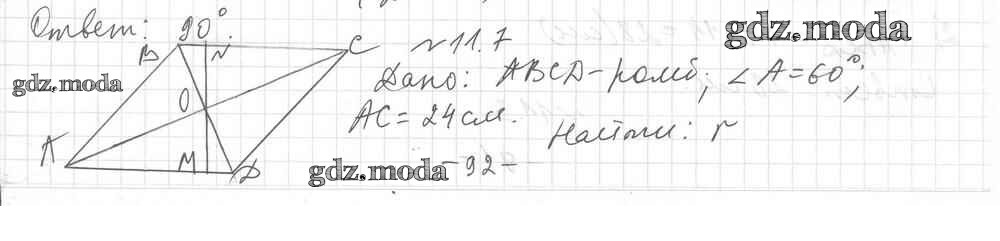 Ответ: 90°.
gdz.moda
B N C
№11.7
gdz.moda
Дано: ABCD-ромб; ∠A=60°;
O
AC=24см.
Найти: r
A M D
gdz.moda
-92-